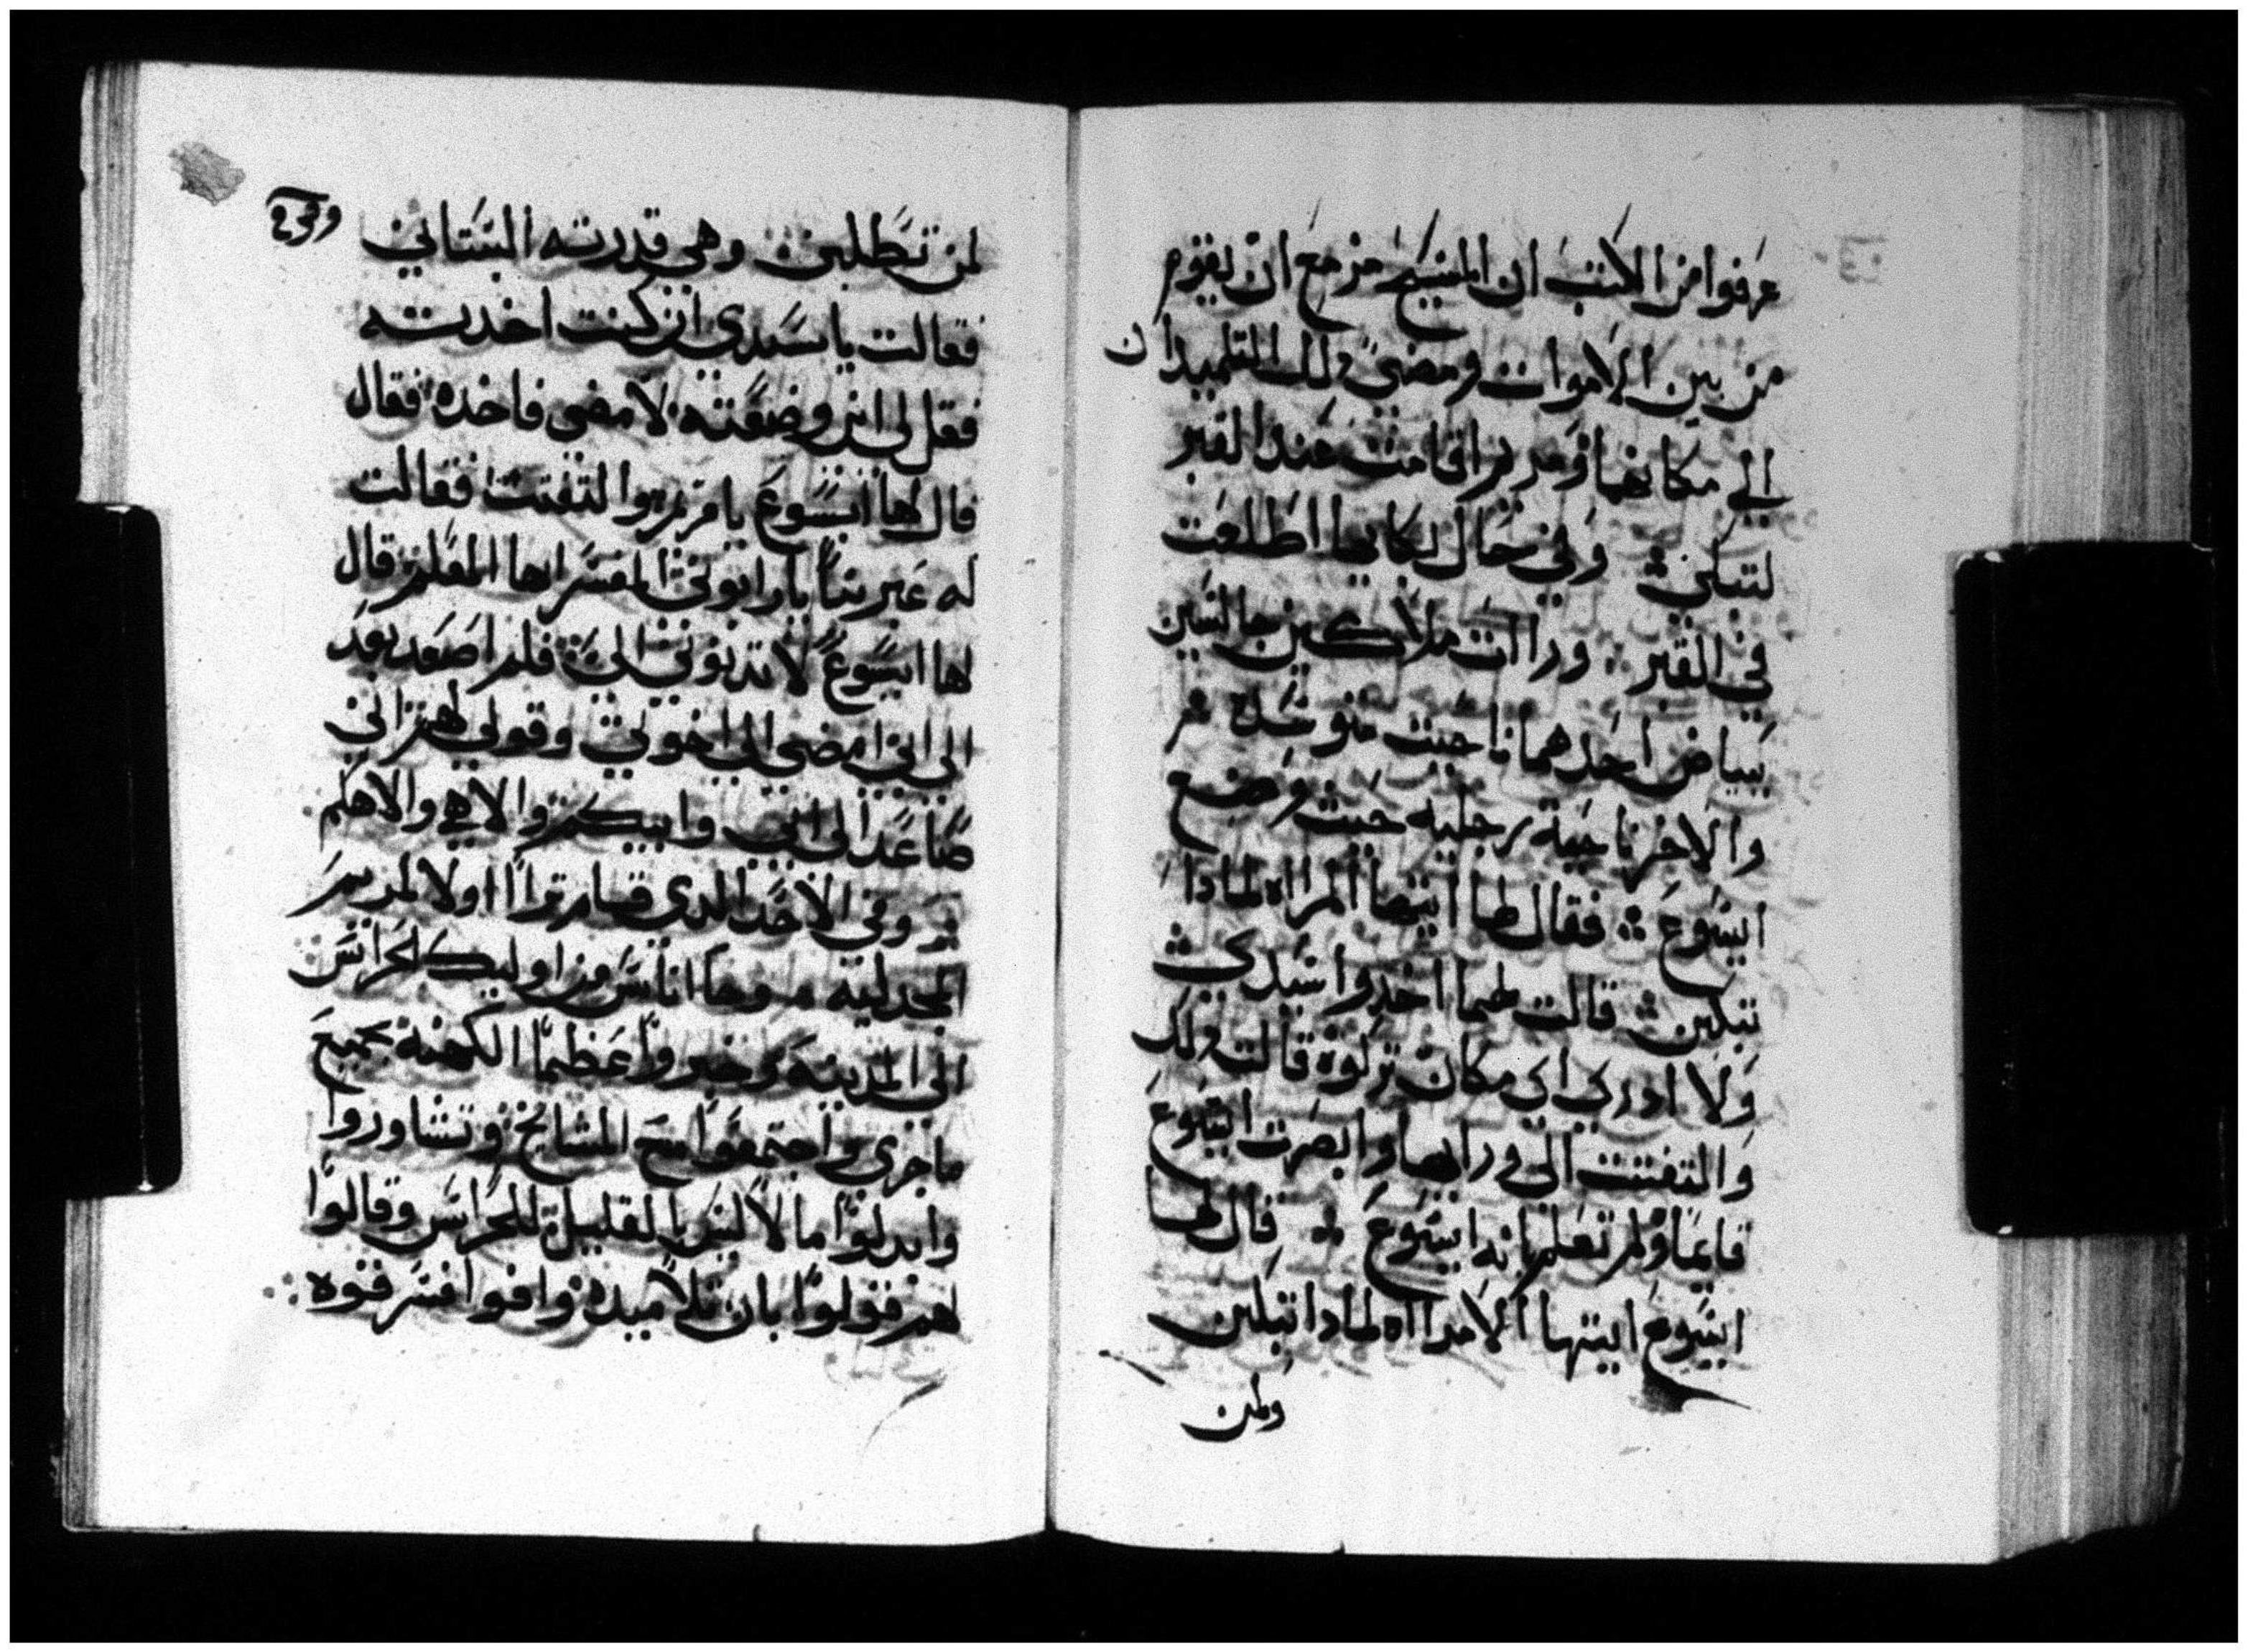 عرفوا من الكتب ان المسيح مزمع ان يقوم
من بين الاموات ومضى دلك التلميدان
الى مكانهما ومريم اقامت عند القبر
لتبكي وفي حال بكايها اطلعت
في القبر ورات ملاكين جالسين
ببياض احدهما ناحيت متوسده
والاخر ناحية رجليه حيت وضع
ايسوع فقال لها ايتها المراه لمادا
تبكين قالت لهما اخدوا سيدي
ولا ادري اي مكان تركوه قالت دلك
والتفتت الى ورايها وابصرت ايسوع
قايما ولم تعلم انه ايسوع قال لها
ايسوع ايتها الامراه لمادا تبكين
ولمن
لمن تطلبين وهي قدرته البستاني
فقالت يا سيدي ان كنت اخدته
فقل لى اين وضعته لامضى فاخده فقال
قال لها ايسوع يا مريم والتفتت فقالت
له عبرينا يا رابوني المفسر ايها المعلم قال
لها ايسوع لا تدنوني الى فلم اصعد بعد
الى ابي امضى الى اخوتي وقولي لهم انى
صاعدا الى ابى وابيكم والاهي والاهكم
وفي الاحد الدي قام ترااا اولا لمريم
المجدليه منوحا اناس من اوليك الحراس
الى المدينه وخبروا عظما الكهنة بجميع
ما جرى واجتمعوا مع المشايخ وتشاوروا
وابدلوا مالا ليس بالقليل للحراس وقالوا
لهم قولوا بان تلاميده وافوا فسرقوه